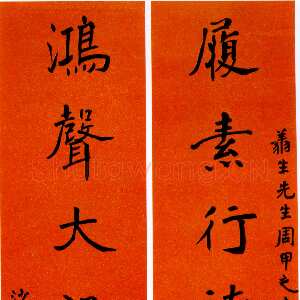 翁生先生周甲之
履素行
鴻聲大